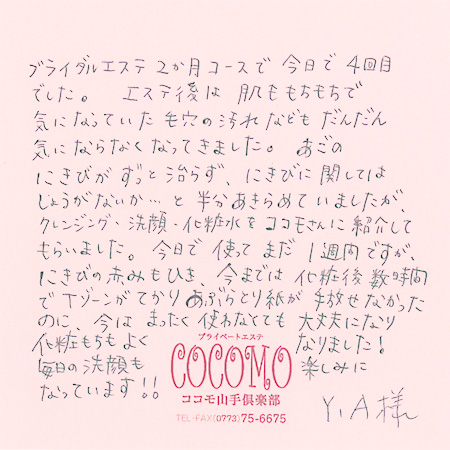 ブライダルエステ 2か月コースで 今日で 4回目
でした。 エステ後は 肌ももちもちで
気になっていた 毛穴の汚れなども だんだん
気にならなくなってきました。 あごの
にきびが ずっと治らず、にきびに関しては
しょうがないか…と 半分あきらめていましたが、
クレンジング・洗顔・化粧水を ココモさんに紹介して
もらいました。今日で 使って まだ 1週間ですが、
にきびの赤みもひき、今までは 化粧後 数時間
で Tゾーンが てかり あぶらとり紙が 手放せなかった
のに、今は まったく 使わなくても 大丈夫になり
化粧もちも よく なりました!
毎日の洗顔も 楽しみに
なっています!!
プライベートエステ
COCOMO
ココモ山手倶楽部
TEL・FAX(0773)75-6675
Y.A様